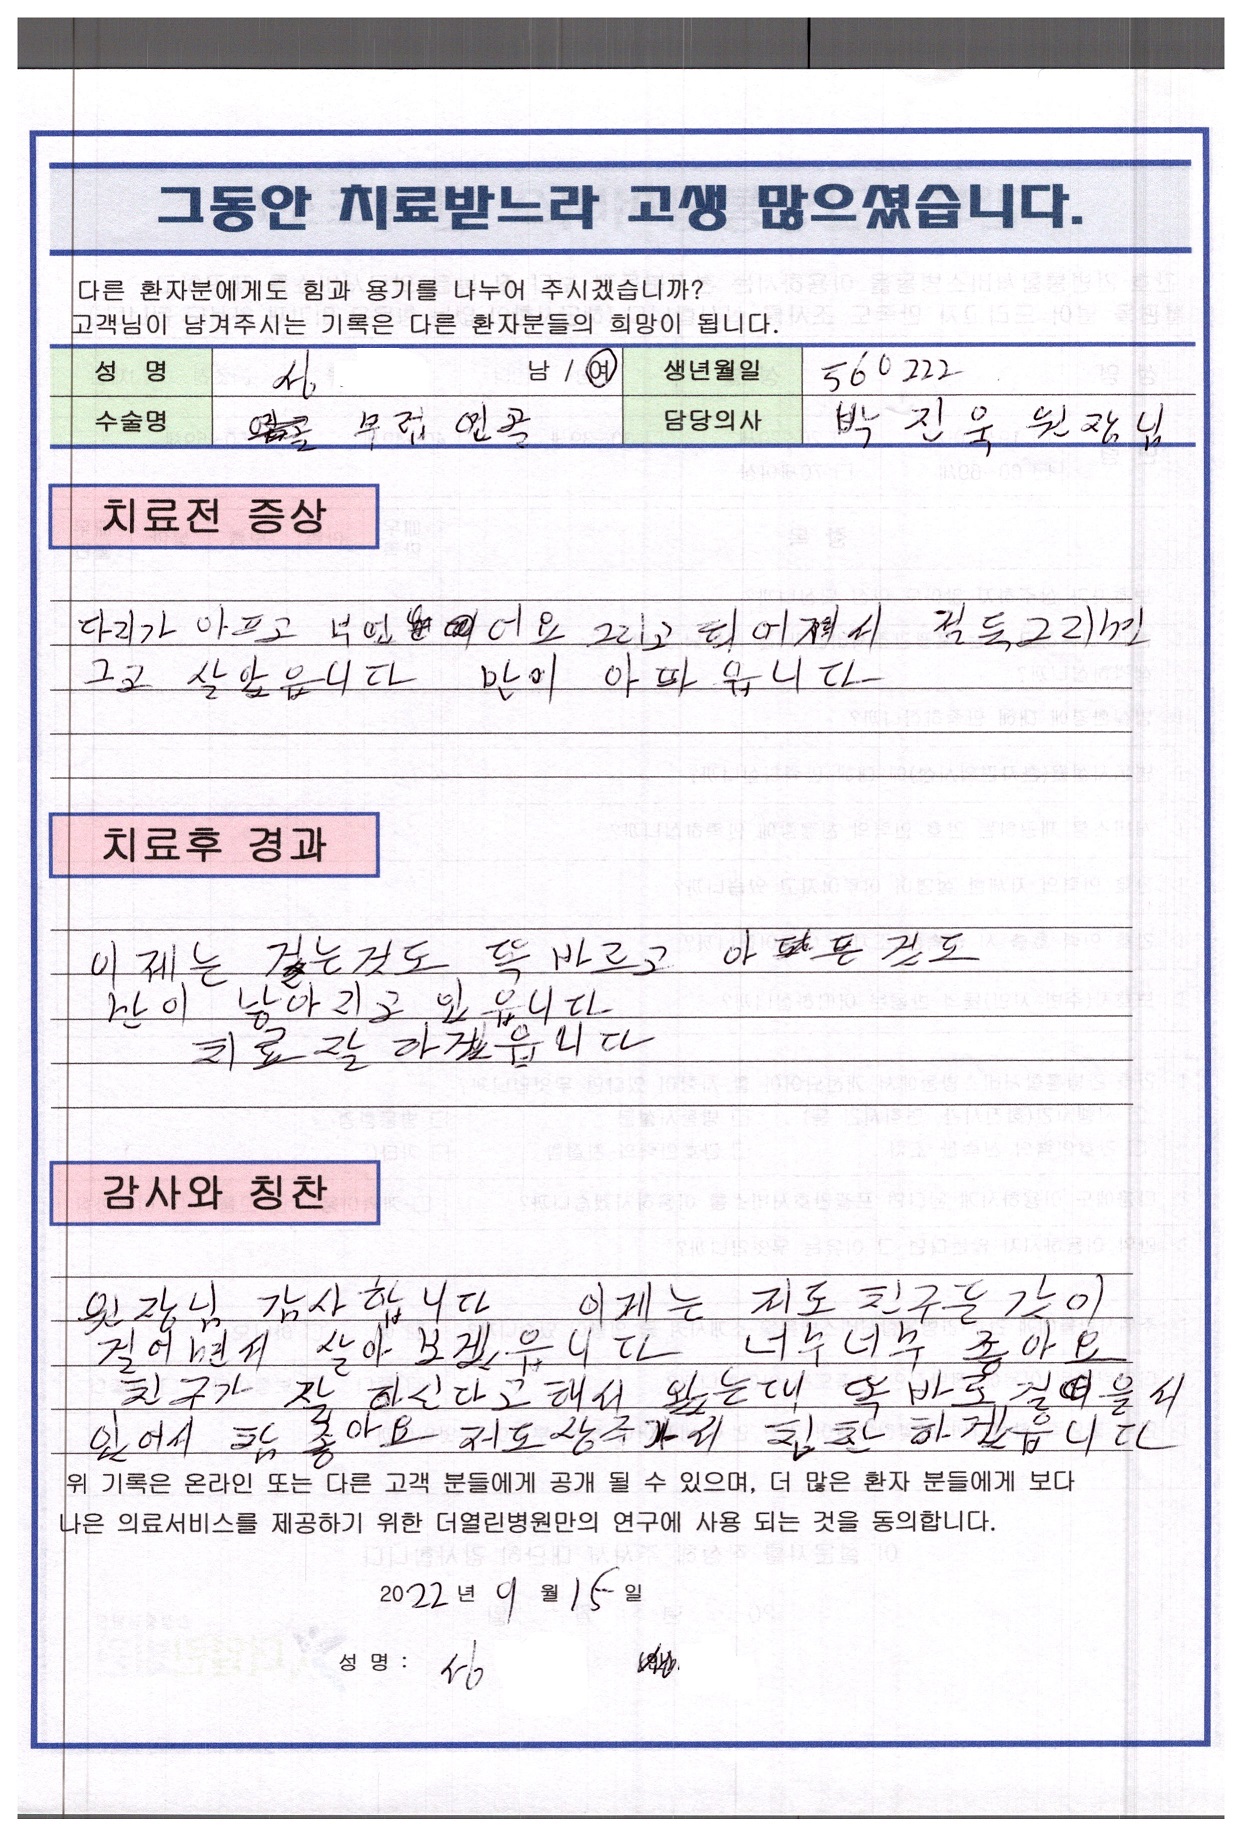 그동안 치료받느라 고생 많으셨습니다.
다른 환자분에게도 힘과 용기를 나누어 주시겠습니까?
고객님이 남겨주시는 기록은 다른 환자분들의 희망이 됩니다.
성 명 남 / 여 생년월일 560222
수술명 무럽 연골 담당의사 박진욱 원장님
치료전 증상
다리가 아프고 어요 그리고 서
그고 살았읍니다 만이 아파읍니다
치료후 경과
이제는 걸는것도 똑바르고 아 픈 것도
만이 낳아지고 있읍니다
치료 잘 하겠읍니다
감사와 칭찬
원장님 감사합니다 이제는 저도 친구들 같이
걸어면서 살아보겠읍니다 너무너무 좋아요
친구가 잘 하신다고 해서 왔는대 똑바로 걸 을 서
있어서 참 좋아요 저도 상주가서 칭찬 하겠읍니다
위 기록은 온라인 또는 다른 고객 분들에게 공개 될 수 있으며, 더 많은 환자 분들에게 보다
나은 의료서비스를 제공하기 위한 더열린병원만의 연구에 사용 되는 것을 동의합니다.
2022 년 9 월 15 일
성 명 :